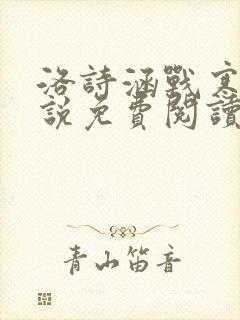 洛詩涵戰寒
說免費閱讀
青山笛音